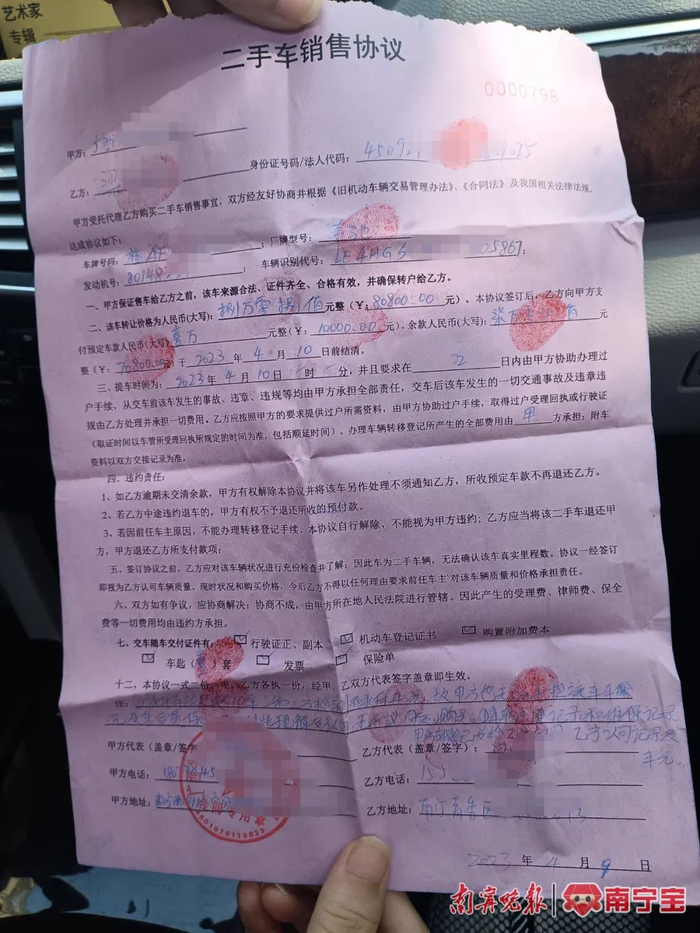 艺术家
专辑
二手车销售协议
0000798
甲方：
身份证号码/法人代码：
乙方：
甲方受托代理乙方购买二手车销售事宜，双方经友好协商并根据《旧机动车辆交易管理办法》、《合同法》及我国相关法律法规，
达成协议如下：
车牌号码：桂A 厂牌型号：
发动机号：80148 车辆识别代号：LE4HG5 05867；
一、甲方保证售车给乙方之前，该车来源合法、证件齐全、合格有效，并确保转户给乙方。
二、该车转让价格为人民币(大写)：捌万零捌佰元整（￥：80800.00 元）。本协议签订后，乙方向甲方支
付预定车款人民币(大写)：壹万 元整（￥：10000.00元），余款人民币(大写)：柒万零捌佰 元
整（￥：70800.00元）于 2023 年 4 月 10 日前结清。
三、提车时间为：2023年 4月10日 时 分，并且要求在 2 日内由甲方协助办理过
户手续，从交车前该车发生的事故、违章、违规等均由甲方承担全部责任，交车后该车发生的一切交通事故及违章违
规由乙方处理并承担一切费用。乙方应按照甲方的要求提供过户所需资料，由甲方协助过户手续，取得过户受理回执或行驶证
（取证时间以车管所受理回执所规定的时间为准，包括顺延时间）。办理车辆转移登记所产生的全部费用由 甲 方承担；附车
资料以双方交接记录为准。
四、违约责任：
1、如乙方逾期未交清余款，甲方有权解除本协议并将该车另作处理不须通知乙方，所收预定车款不再退还乙方。
2、若乙方中途违约退车的，甲方有权不予退还所收的预付款。
3、若因前任车主原因，不能办理转移登记手续，本协议自行解除，不能视为甲方违约；乙方应当将该二手车退还甲
方，甲方退还乙方所支付款项；
五、签订协议之前，乙方应对该车辆状况进行充份检查并了解；因此车为二手车辆，无法确认该车真实里程数。协议一经签订
即视为乙方认可车辆质量、现时状况和购买价格，今后乙方不得以任何理由要求前任车主对该车辆质量和价格承担责任。
六、双方如有争议，应协商解决；协商不成，由甲方所在地人民法院进行管辖。因此产生的受理费、律师费、保全
费等一切费用均由违约方承担。
七、交车随车交付证件有： 行驶证正、副本 机动车登记证书 购置附加费本
车匙（ ）套 发票 保险单
十二、本协议一式二份，甲、乙方各执一份，经甲、乙双方代表签字盖章即生效。
记录和维保记录
乙方认可记录及
甲方代表（盖章/签字）
乙方代表（盖章/签字）：
甲方电话：
乙方电话：155
甲方地址：
乙方地址：南宁青秀区
2023 年 4 月 9 日
南宁晚报 南宁宝